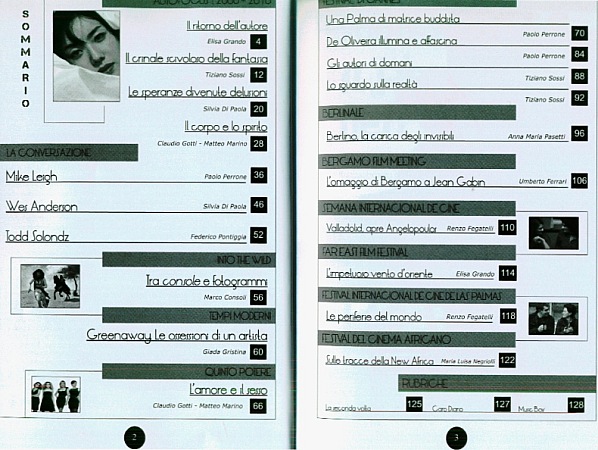 SOMMARIO
AUTOFOCUS | 2000 - 2010
Il ritorno dell'autore
Elisa Grando 4
Il crinale scivoloso della fantasia
Tiziano Sossi 12
Le speranze divenute delusioni
Silvia Di Paola 20
Il corpo e lo spirito
Claudio Gotti - Matteo Marino 28
LA CONVERSAZIONE
Mike Leigh Paolo Perrone 36
Wes Anderson Silvia Di Paola 46
Todd Solondz Federico Pontiggia 52
INTO THE WILD
Tra console e fotogrammi
Marco Consoli 56
TEMPI MODERNI
Greenaway. Le ossessioni di un artista
Giada Gristina 60
QUINTO POTERE
L'amore e il sesso
Claudio Gotti - Matteo Marino 66
2
FESTIVAL DI CANNES
Una Palma di matrice buddista
Paolo Perrone 70
De Oliveira illumina e affascina
Paolo Perrone 84
Gli autori di domani
Tiziano Sossi 88
Lo sguardo sulla realtà
Tiziano Sossi 92
BERLINALE
Berlino, la carica degli invisibili Anna Maria Pasetti 96
BERGAMO FILM MEETING
L'omaggio di Bergamo a Jean Gabin Umberto Ferrari 106
SEMANA INTERNACIONAL DE CINE
Valladolid, apre Angelopoulos Renzo Fegatelli 110
FAR EAST FILM FESTIVAL
L'impetuoso vento d'oriente Elisa Grando 114
FESTIVAL INTERNACIONAL DE CINE DE LAS PALMAS
Le periferie del mondo Renzo Fegatelli 118
FESTIVAL DEL CINEMA AFRICANO
Sulle tracce della New Africa Maria Luisa Negriolli 122
RUBRICHE
La seconda volta 125 Caro Diario 127 Music Box 128
3